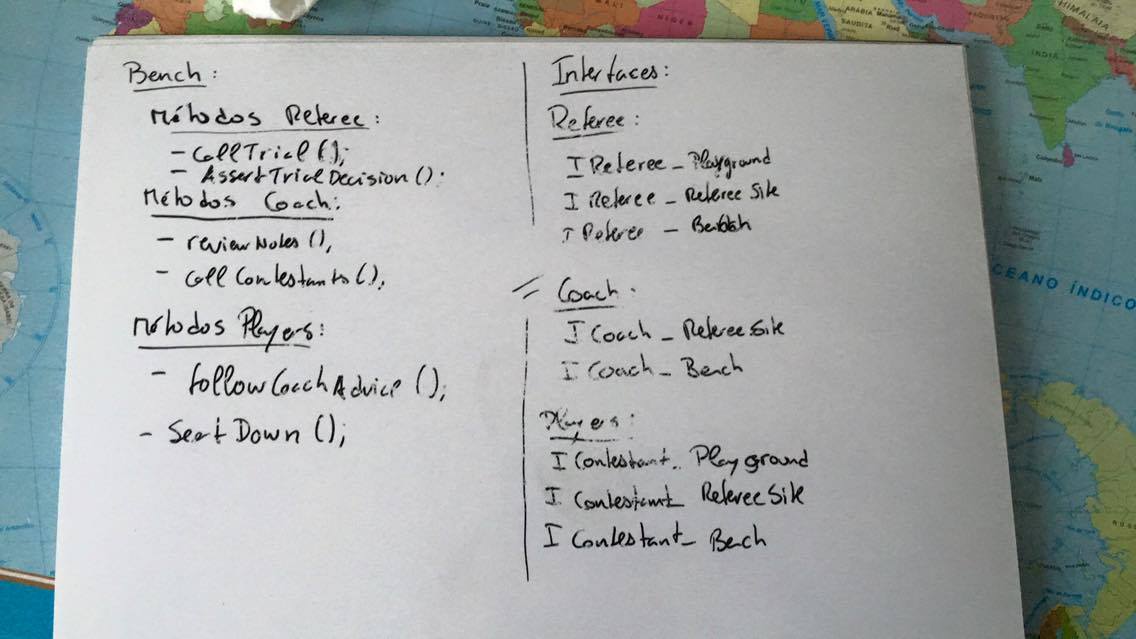 Bench:
Métodos Referee:
- callTrial();
- AssertTrialDecision().
Métodos Coach:
- reviewNotes(),
- callContestants(),
Métodos Players:
- followCoachAdvice();
- SeatDown();
Interfaces:
Referee:
I Referee_Playground
I Referee_Referee Site
I Referee_
Coach:
I Coach_RefereeSite
I Coach_Bench
Players:
I Contestant_Playground
I Contestant_RefereeSite
I Contestant_Bench
NIGER
ARÁBIA
SAUDITA
ÍNDIA
HIMALAIA
OCEANO ÍNDICO